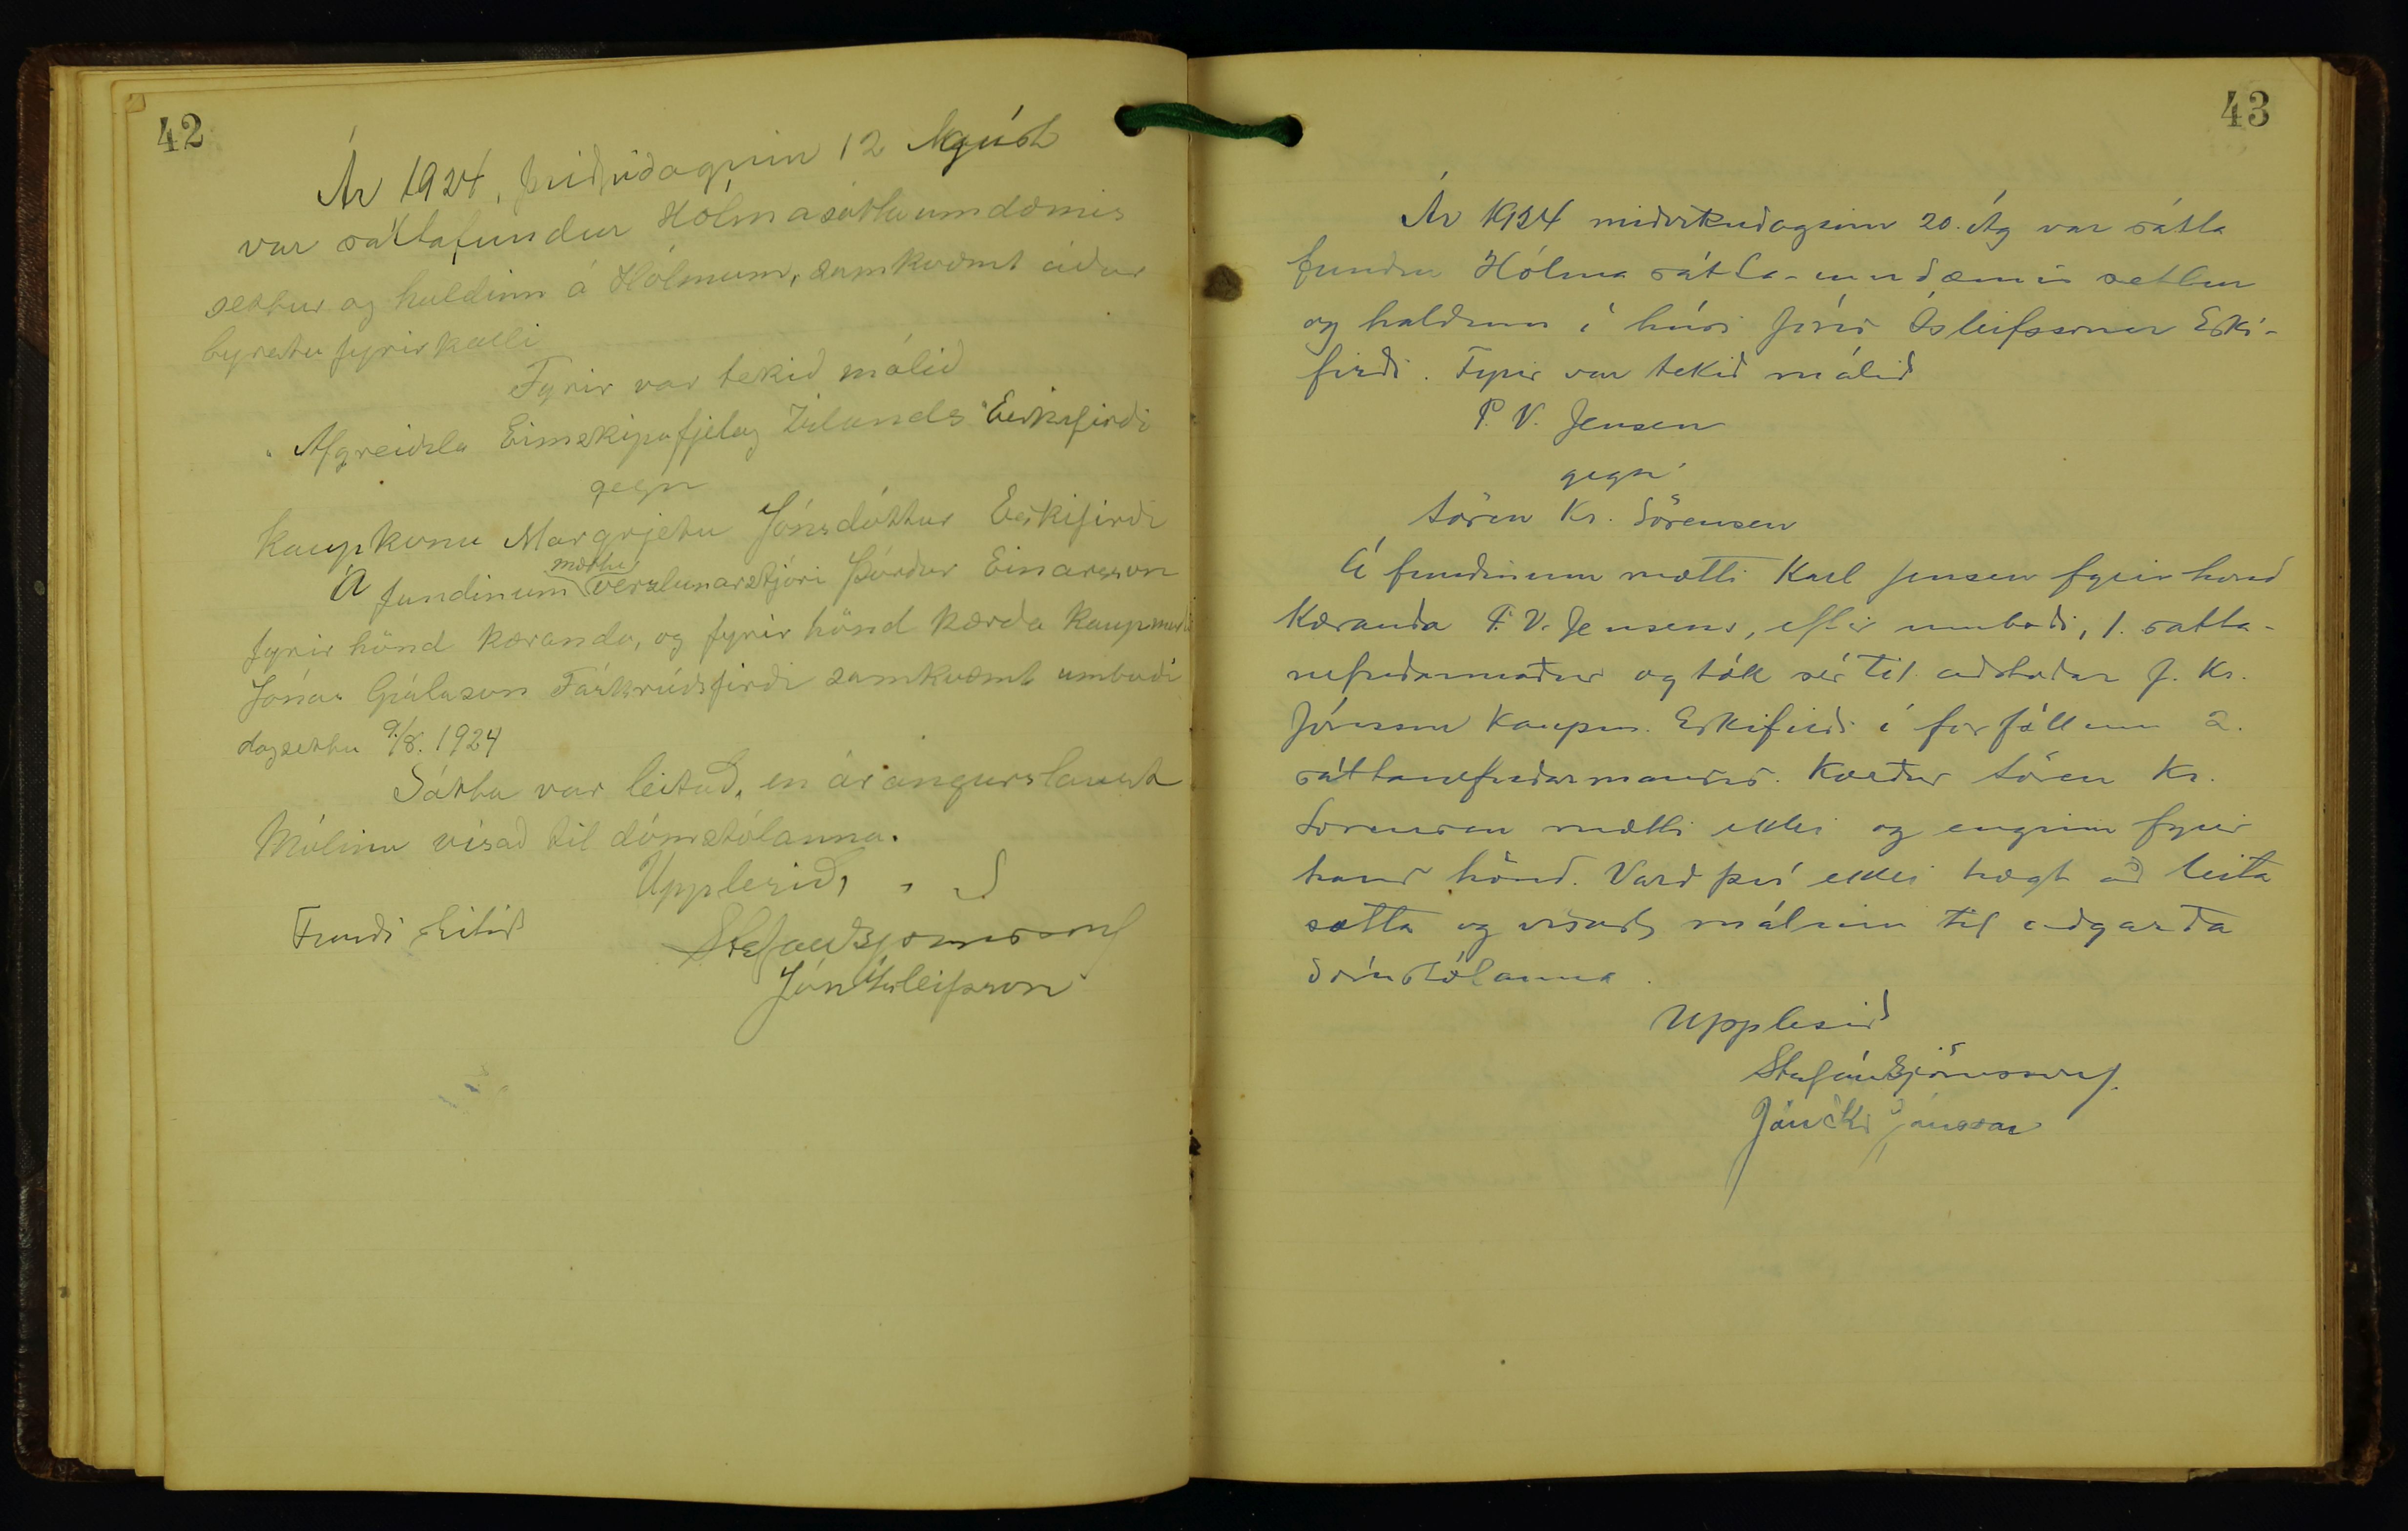 42
Ár 1924, þriðjudaginn 12 Ágúst
var sáttafundur Hólmasáttaumdæmis
settur og haldinn á Hólmum, samkvæmt áður
byrstu fyrirkalli
Fyrir var tekið málið
Afgreiðsla Eimskipafjelag Íslands Eskifirði
gegn
Kaupkonu Margrjetu Jónsdóttur Eskifirði
Á fundinum mættu verslunarstjóri Þórður Einarsson
fyrir hönd kæranda, og fyrir hönd kærða kaupmaður
Jónas Gíslason Fáskrúðsfirði samkvæmt umboði
dagsettu 9/8. 1924
Sátta var leitað, en árangurslaust
Málinu vísað til dómstólanna.
Upplesið,
Fundi slitið
Stefán Björnsson
Jón Ísleifsson
43
Ár 1924 miðvikudaginn 20. Ág var sátta
fundur Hólma sátta-umdæmis settur
og haldinn í húsi Jóns Ísleifssonar Eski-
firði. Fyrir var tekið málið
P. V. Jensen
gegn
Sören Kr. Sörensen
Á fundinum mætti Karl Jensen fyrir hönd
Kæranda P. V. Jensens, eftir umboði, 1. sátta-
nefndarmaður og tók sér til aðstoðar J. Kr.
Jónsson Kaupm. Eskifirði í forföllum 2.
sáttanefndarmanns. Kærður Sören Kr.
Sörensen mætti ekki og enginn fyrir
hans hönd. Varð því ekki hægt að leita
sátta og vísað málinu til aðgarða
dómstólanna.
Upplesið
Stefán Björnsson
Jón Kr Jónsson